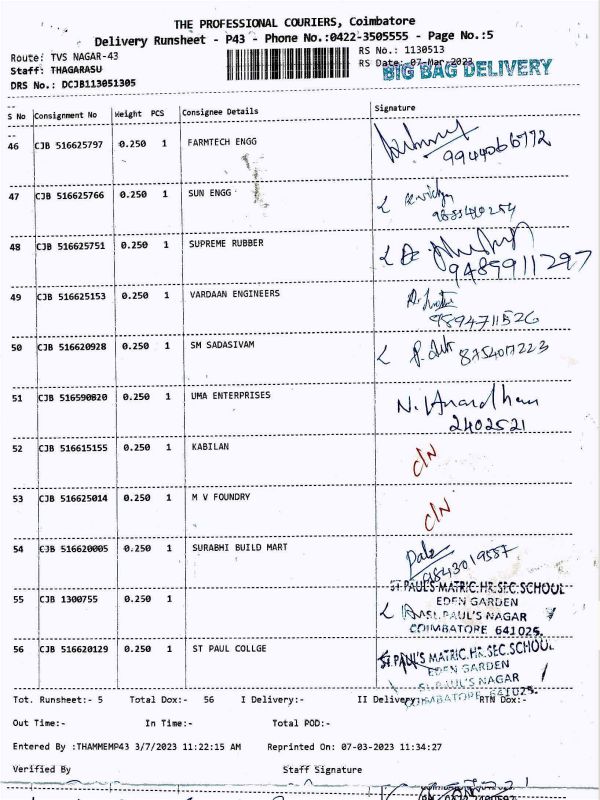 THE PROFESSIONAL COURIERS, Coimbatore
Delivery Runsheet - P43 - Phone No.:0422-3505555 - Page No.:5
Route: TVS NAGAR-43
RS No.: 1130513
Staff: THAGARASU
RS Date: 07-Mar-2023
BIG BAG DELIVERY
DRS No.: DCJB113051305
S No Consignment No Weight PCS Consignee Details Signature
46 CJB 516625797 0.250 1 FARMTECH ENGG
47 CJB 516625766 0.250 1 SUN ENGG
48 CJB 516625751 0.250 1 SUPREME RUBBER
9489911297
49 CJB 516625153 0.250 1 VARDAAN ENGINEERS
9894711526
50 CJB 516620928 0.250 1 SM SADASIVAM
8754017223
51 CJB 516590820 0.250 1 UMA ENTERPRISES
2402521
52 CJB 516615155 0.250 1 KABILAN C/N
53 CJB 516625014 0.250 1 M V FOUNDRY C/N
54 CJB 516620005 0.250 1 SURABHI BUILD MART
9843019587
ST.PAUL'S MATRIC.HR.SEC.SCHOOL
55 CJB 1300755 0.250 1 EDEN GARDEN
ST.PAUL'S NAGAR
COIMBATORE 641025.
56 CJB 516620129 0.250 1 ST PAUL COLLGE
ST.PAUL'S MATRIC.HR.SEC.SCHOOL
EDEN GARDEN
ST.PAUL'S NAGAR
COIMBATORE 641025.
Tot. Runsheet:- 5 Total Dox:- 56 I Delivery:- II Delivery: RTN Dox:-
Out Time:- In Time:- Total POD:-
Entered By :THAMMEMP43 3/7/2023 11:22:15 AM Reprinted On: 07-03-2023 11:34:27
Verified By Staff Signature